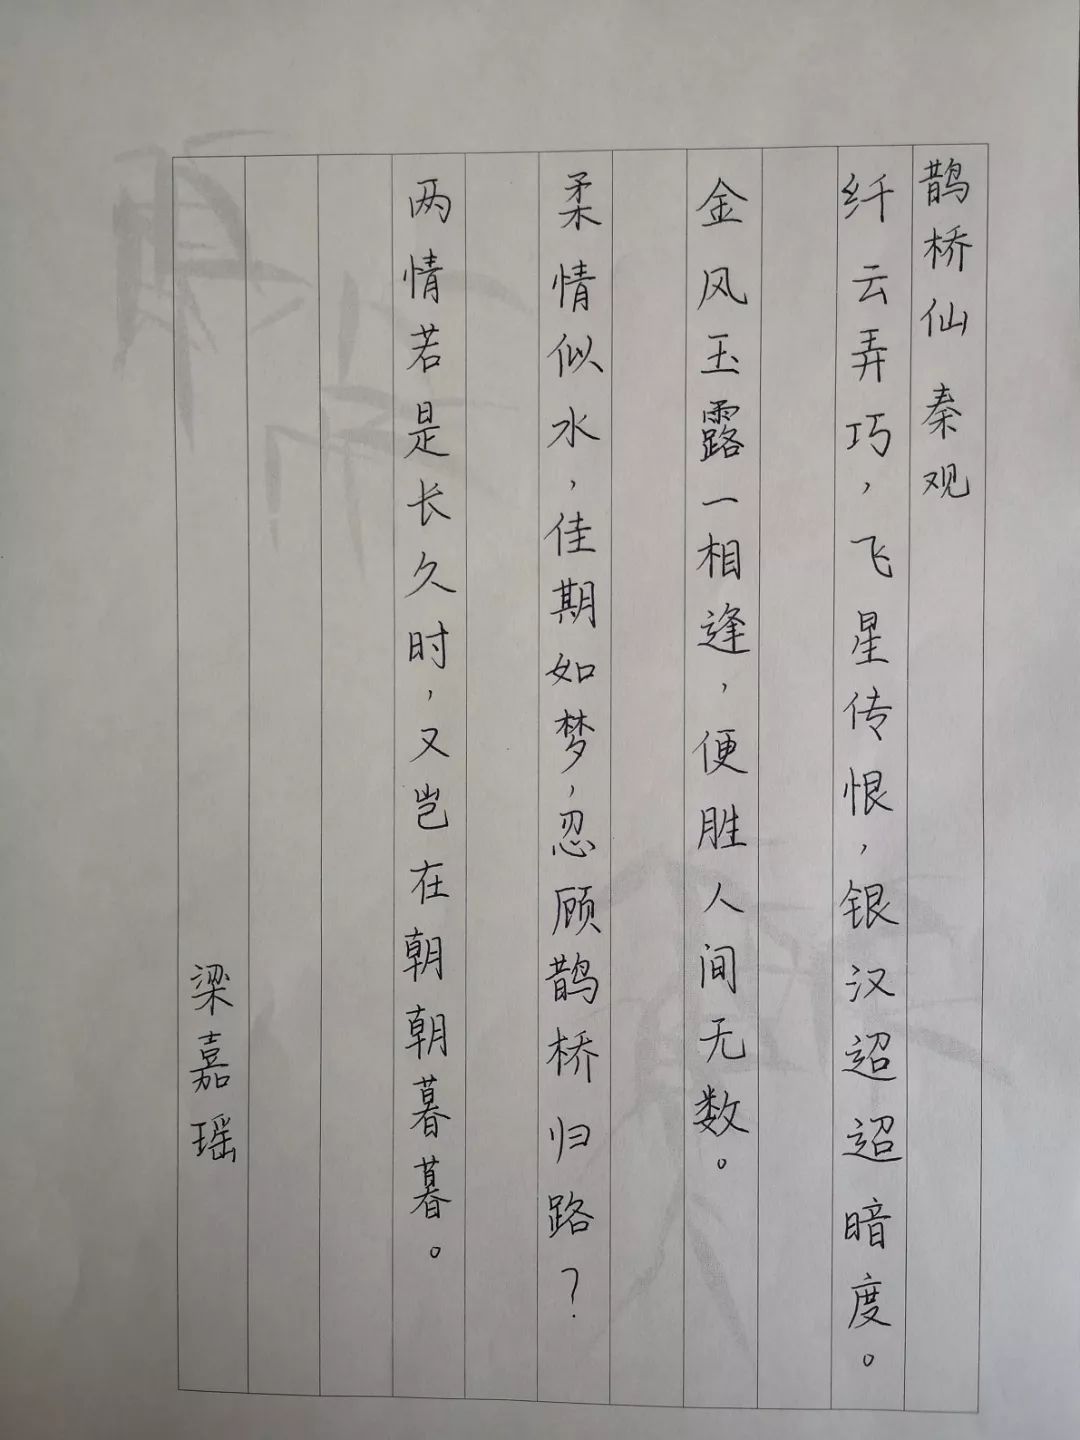 鹊桥仙 秦观
纤云弄巧，飞星传恨，银汉迢迢暗度。
金风玉露一相逢，便胜人间无数。
柔情似水，佳期如梦，忍顾鹊桥归路？
两情若是长久时，又岂在朝朝暮暮。
梁嘉瑶